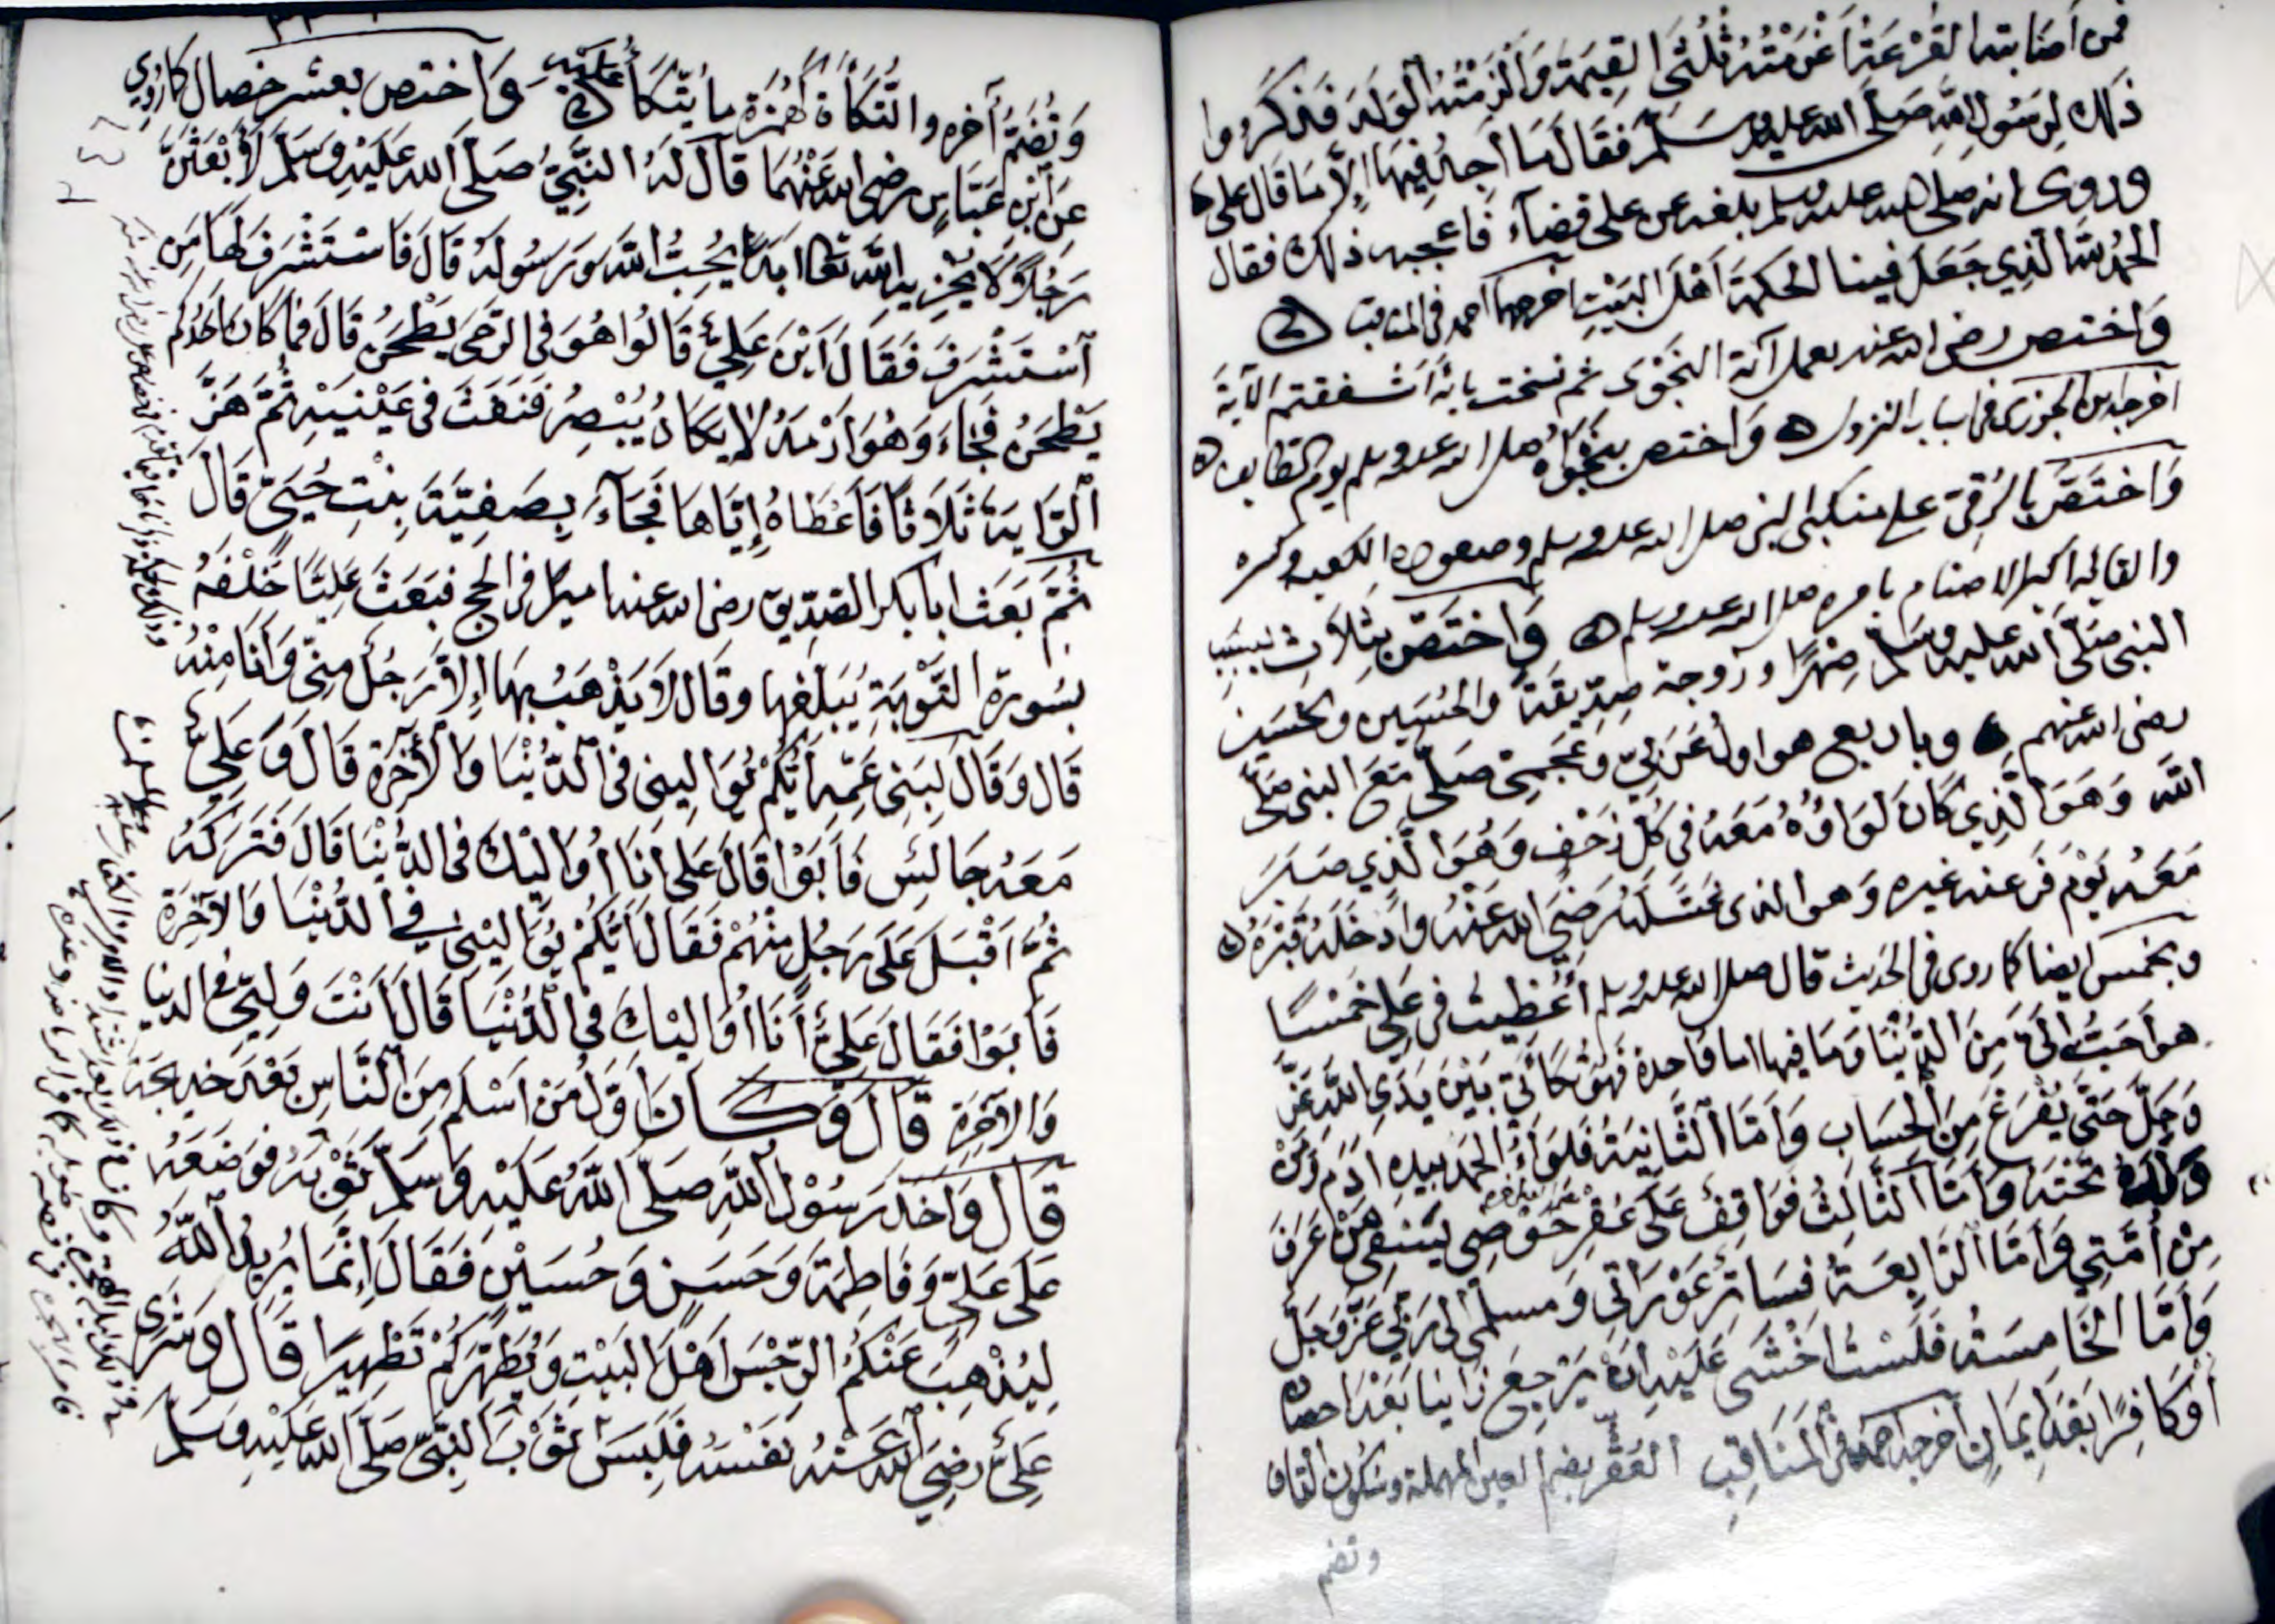 فمن أصابته القرعة أغرمته ثلثي القيمة وألزمته الولد فذكروا
ذلك لرسول الله صلى الله عليه وسلم فقال ما أجد فيها إلا ما قال علي
وروى انه صلى الله عليه وسلم بلغه عن علي قضاء فأعجبه ذلك فقال
الحمد لله الذي جعل فينا الحكمة أهل البيت أخرجهما احمد في المناقب
واختص رضي الله عنه بعمل آية النجوى ثم نسخت بآية أأشفقتم الآية
أخرجه ابن الجوزي في أسباب النزول واختص بنجواه صلى الله عليه وسلم يوم الطايف
واختص بالرقي على منكبي النبي صلى الله عليه وسلم وصعوده الكعبة وكسره
والقائه أكبر الأصنام بأمره صلى الله عليه وسلم واختص بثلاث بسبب
النبي صلى الله عليه وسلم صهرا وزوجة صديقة والحسن والحسين
رضي الله عنهم وبأربع هو أول عربي وعجمي صلى مع النبي صلى
الله وهو الذي كان لواؤه معه في كل زحف وهو الذي صبر
معه يوم فر عنه غيره وهو الذي غسله رضي الله عنه وأدخله قبره
وبخمس ايضا كما روى في الحديث قال صلى الله عليه وسلم أعطيت في علي خمسا
هو أحب إلي من الدنيا وما فيها اما واحدة فهو تكأتي بين يدي الله عز
وجل حتى يفرغ من الحساب وأما الثانية فلواء الحمد بيده آدم ومن
ولده تحته وأما الثالث فواقف على عقر حوضي يسقي من عرف
من أمتي وأما الرابعة فساتر عوراتي ومسلمي الى ربي عز وجل
وأما الخامسة فلست أخشى عليه أن يرجع زانيا بعد احصان
أو كافرا بعد إيمان أخرجه احمد في المناقب العقر بضم العين المهملة وسكون القاف
وتضم
وتضم آخره والتكأة كهمزة ما يتكأ عليه واختص بعشر خصال كما روي
عن ابن عباس رضي الله عنهما قال له النبي صلى الله عليه وسلم لأبعثن
رجلا لا يخزيه الله تعالى أبدا يحب الله ورسوله قال فاستشرف لها من
استشرف فقال أين علي قالوا هو في الرحى يطحن قال فما كان أحدكم
يطحن فجاء وهو أرمد لا يكاد يبصر فنفث في عينيه ثم هز
الراية ثلاثا فأعطاه إياها فجاء بصفية بنت حيي قال
ثم بعث أبا بكر الصديق رضي الله عنه أميرا في الحج فبعث عليا خلفه
بسورة التوبة يبلغها وقال لا يذهب بها إلا رجل مني وأنا منه
قال وقال لبني عمه أيكم يواليني في الدنيا والآخرة قال وعلي
معه جالس فأبوا قال علي أنا أواليك في الدنيا قال فتركه
ثم أقبل على رجل منهم فقال أيكم يواليني في الدنيا والآخرة
فأبوا فقال علي أنا أواليك في الدنيا قال أنت وليي في الدنيا
والآخرة قال وكان أول من أسلم من الناس بعد خديجة
قال وأخذ رسول الله صلى الله عليه وسلم ثوبه فوضعه
على علي وفاطمة وحسن وحسين فقال إنما يريد الله
ليذهب عنكم الرجس أهل البيت ويطهركم تطهيرا قال وشرى
علي رضي الله عنه نفسه فلبس ثوب النبي صلى الله عليه وسلم